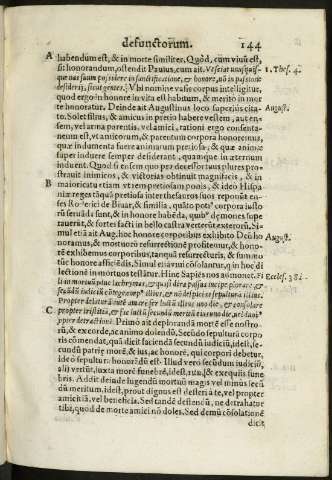 defunctorum. 144
A habendum est, & in morte similiter. Quòd, cum viuus est,
sit honorandum, ostendit Paulus, cum ait. Vt sciat vnusquis-
que vas suum possidere in sanctificatione, & honore, nõ in passione
desiderij, sicut gentes. Vbi nomine vasis corpus intelligitur,
quod ergo in honore in vita est habitum, & merito in mor
te honoratur. Deinde ait Augustinus loco superiùs cita-
to. Solet filius, & amicus in pretio habere vestem, aut en-
sem, vel arma parentis, vel amici, rationi ergo consenta-
neum est, vt amicorum, & parentum corpora honoremus,
quæ indumenta fuere animarum pretiosa, & quæ animæ
super induere semper desiderant, quamque in æternum
induent. Quod si ensem quo prædecessor tuus plures pro-
strauit inimicos, & victorias obtinuit magnificas, & in
B maioricatu etiam vt rem pretiosam ponis, & ideo Hispa
niæ reges tãquã pretiosa inter thesauros suos reponũt en-
ses Roderici de Biuar, & similiũ, quãto potiꝰ corpora iusto
rũ seruãda sunt, & in honore habẽda, quibꝰ dęmones supe
rauerũt, & fortes facti in bello castra verterũt exterorũ. Si-
mul etiã ait Aug. hoc honore corporibus exhibito Deũ ho
noramus, & mostuorũ resurrectionẽ profitemur, & hono-
rẽ exhibemus corporibus, tanquã resurrecturis, & summo
tũc honore afficiẽdis. Simul etiã viui cõsolantur, q in hoc di
lectionẽ in mortuos testãtur. Hinc Sapiẽs nos admonet. Fi
li in mortuũ plue lachrymas, & quasi dira passus incipe plorare, &
secundũ iudiciũ cõtege corpꝰ illius, & nõ despicias sepulturã illius.
Propter delaturã autẽ amarè fer luctũ illius vno die, & consolare
C propter tristitiã, & fac luctũ secundũ meritũ eius vno die, vel duobꝰ
ppter detractionẽ. Primò ait deplorandã mortẽ esse nostro-
rũ, & ex corde, ac animo dolendũ. Secũdo sepulturã corpo
ris cõmendat, quã dicit faciendã secundũ iudiciũ, idest, se-
cundũ patrię morẽ, & ius, ac honorẽ, qui corpori debetur,
ideò sepulturã honorandã est. Illud verò secũdum iudiciũ,
alij vertũt, iuxta morẽ funebrẽ, idest, ritũ, & exequijs fune
bris. Addit deinde lugendũ mortuũ magis vel minus secũ
dũ meritum, idest, prout dignus est desiderâte, vel propter
amicitiã, vel beneficia. Sed tãdẽ desistendũ, ne detrahatur
tibi, quòd de morte amici nõ doles. Sed demũ cõsolationẽ
dicit
1. Thes. 4.
August.
August.
Eccles. 38.